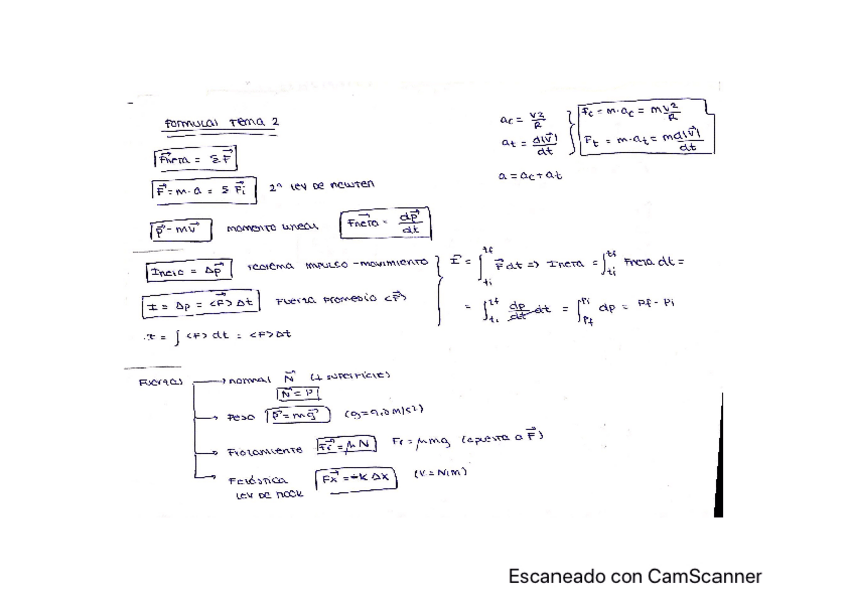 FORMULAS TEMA 2
F⃗neta = ΣF⃗
F⃗ = m·a = Σ F⃗i   2ª LEY DE NEWTON
p⃗ = mv⃗   momento lineal   F⃗neta = dp⃗/dt
ac = v2/R
at = d|v⃗|/dt
Fc = m·ac = m v2/R
Ft = m·at = m d|v⃗|/dt
a = ac + at
Ineta = Δp⃗   TEOREMA IMPULSO-MOVIMIENTO
I = Δp = <F⃗> Δt   FUERZA PROMEDIO <F⃗>
I = ∫ <F> dt = <F> Δt
I⃗ = ∫ti tf F⃗ dt => Ineta = ∫ti tf Fneta dt =
= ∫ti tf dp/dt dt = ∫pf pi dp = Pf - Pi
FUERZAS
normal N⃗ (⊥ superficies)
N⃗ = P
Peso p⃗ = mg⃗ (g = 9,8 m/s2)
Frozamiento F⃗r = μN   Fr = μmg (opuesta a F⃗)
Felástica   F⃗x = -k Δx   (K = N/m)
LEY DE HOOK
Escaneado con CamScanner